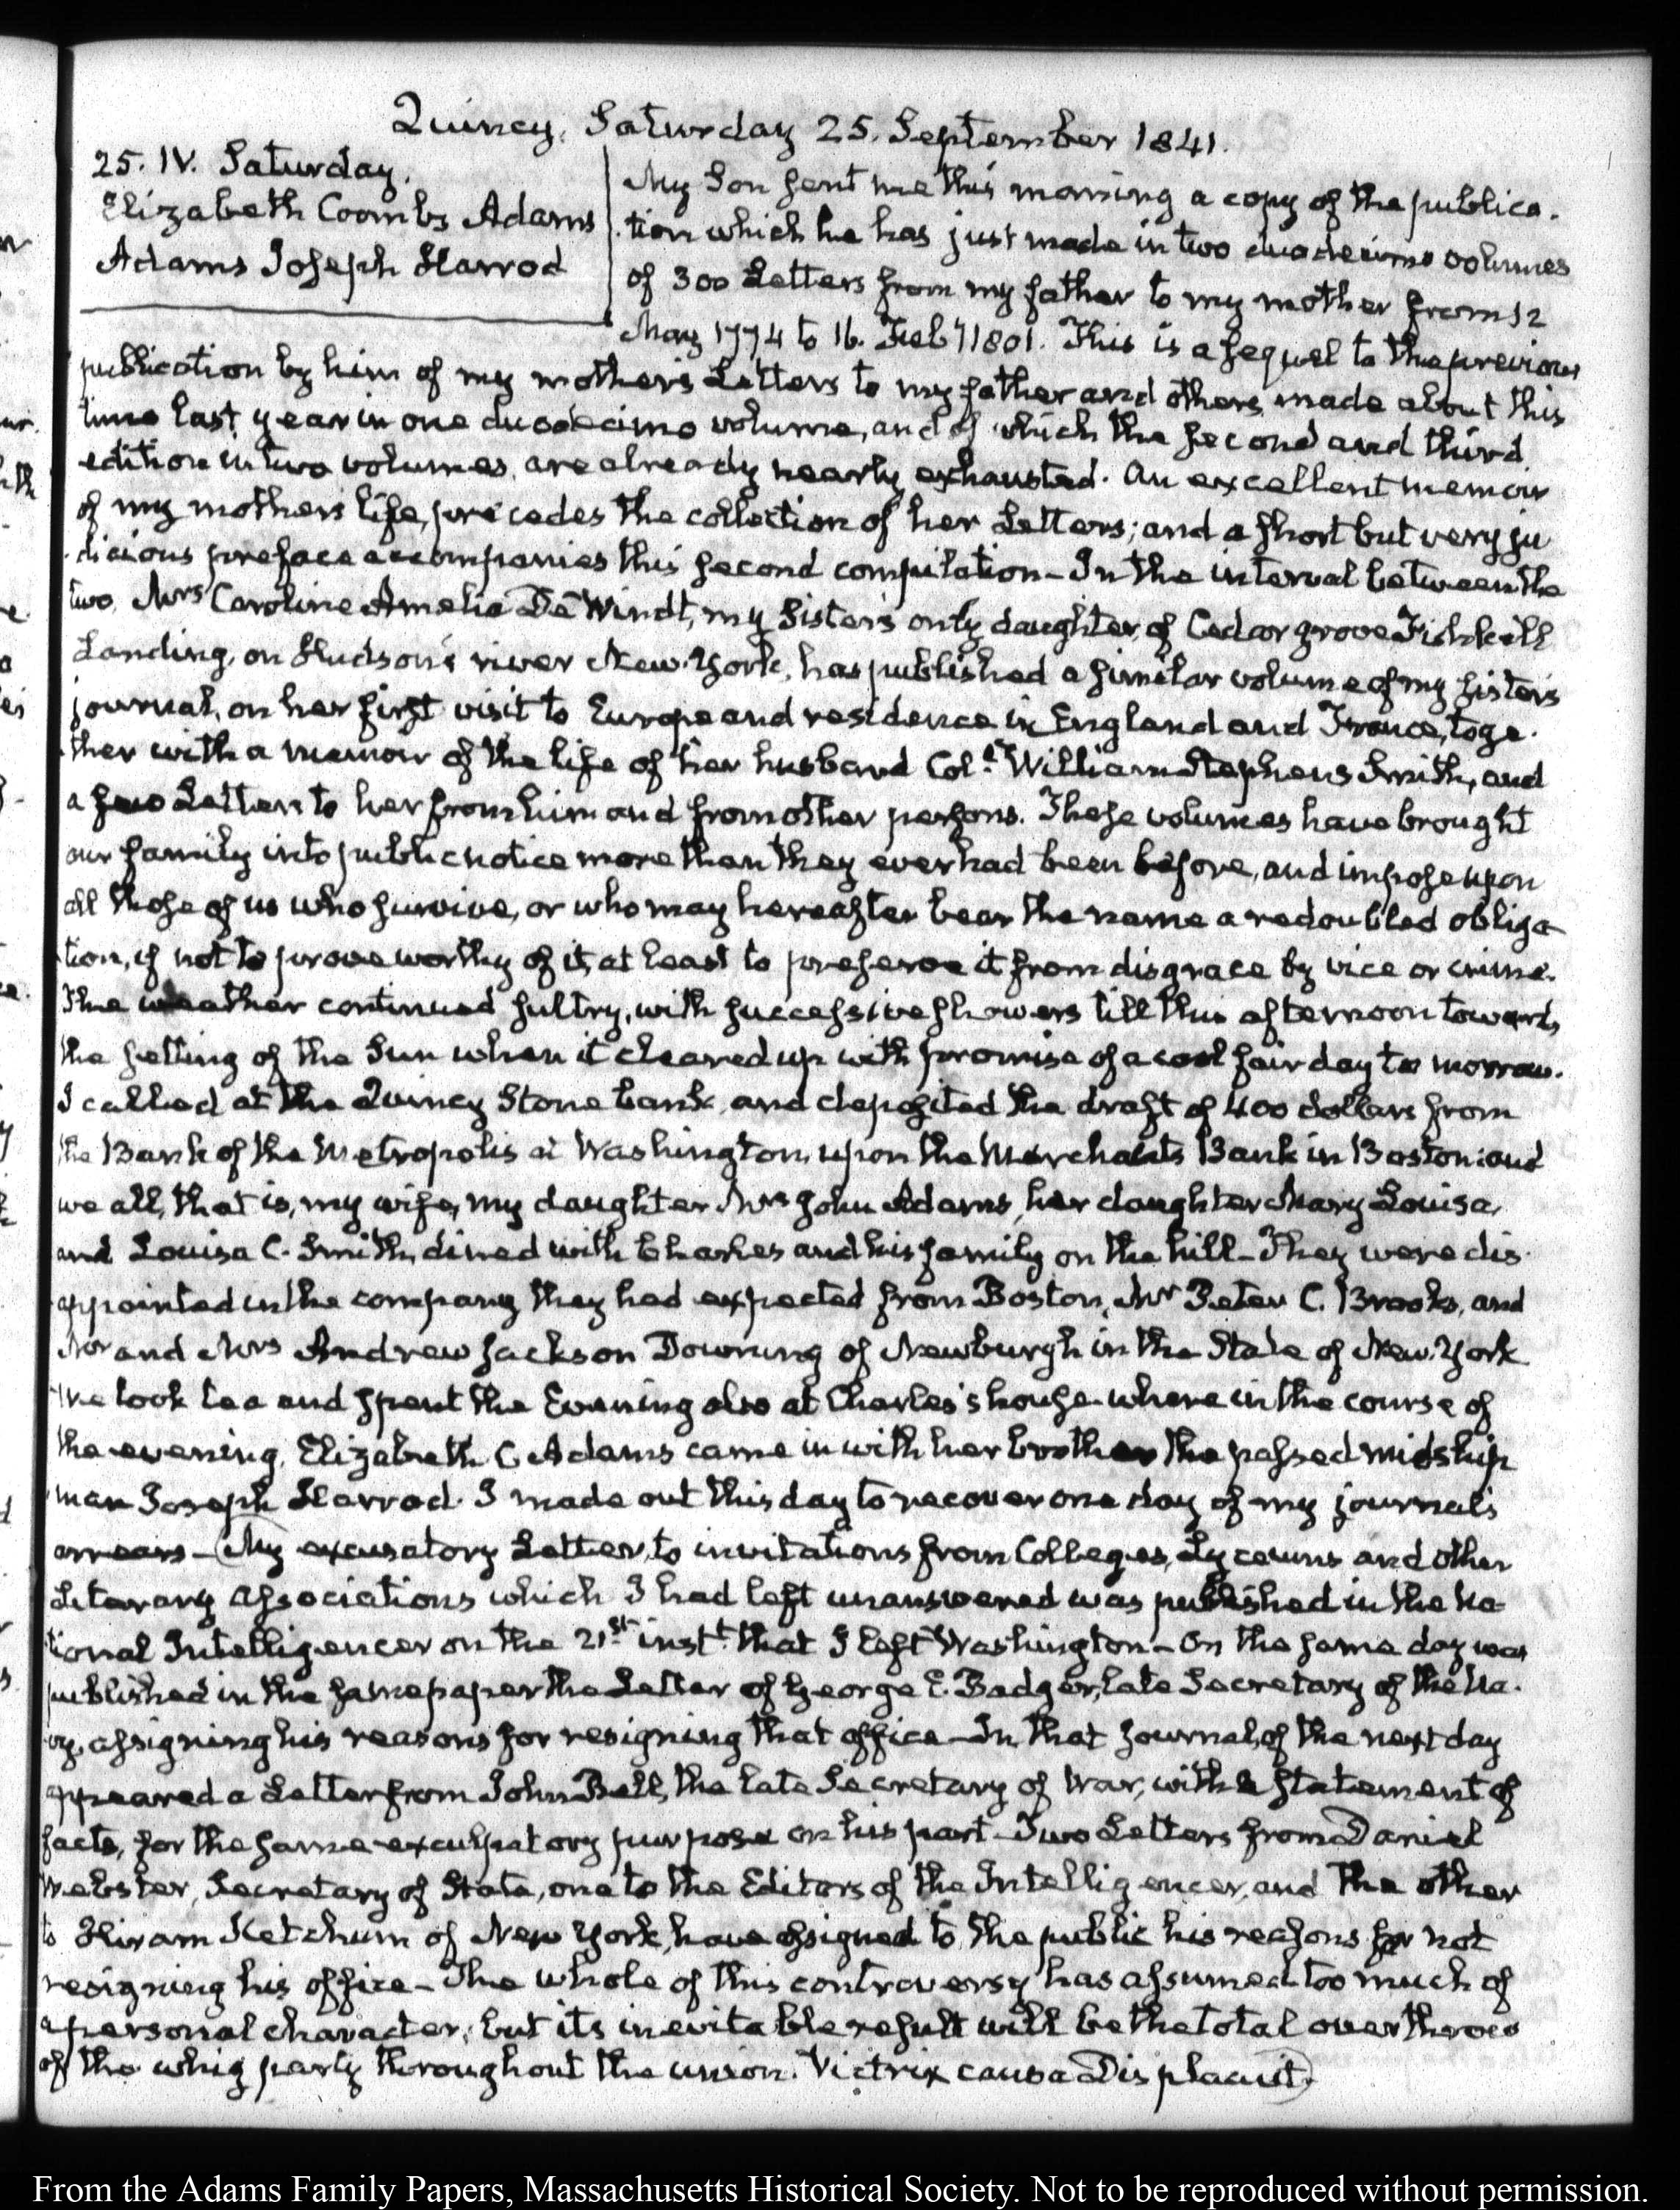 Quincy. Saturday 25. September 1841.
25. IV. Saturday.
Elizabeth Coombs Adams
Adams Joseph Harrod
My Son sent me this morning a copy of the publica-
tion which he has just made in two duodecimo volumes
of 300 Letters from my father to my mother from 12
May 1774 to 16. Feby 1801. This is a sequel to the previous
publication by him of my mother's Letters to my father and others, made about this
time last year in one duodecimo volume, and of which the second and third
edition in two volumes, are already nearly exhausted. An excellent memoir
of my mothers life, precedes the collection of her Letters; and a short but very ju
dicious preface accompanies this second compilation – In the interval between the
two, Mrs Caroline Amelia De Windt, my Sister's only daughter, of Cedar grove Fishkill
Landing, on Hudson's river New-York, has published a similar volume of my sister's
journal, on her first visit to Europe and residence in England and France, toge-
ther with a memoir of the life of her husband Coll. William Stephens Smith, and
a few Letters to her from him and from other persons. These volumes have brought
our family into public notice more than they ever had been before, and impose upon
all those of us who survive, or who may hereafter bear the name a redoubled obliga-
tion, if not to prove worthy of it, at least to preserve it from disgrace by vice or crime.
The weather continued sultry, with successive showers till this afternoon towards,
the setting of the Sun when it cleared up with promise of a cool fair day to morrow.
I called at the Quincy Stone bank, and deposited the draft of 400 dollars from
the Bank of the Metropolis at Washington, upon the Merchants Bank in Boston: and
we all, that is, my wife, my daughter Mrs John Adams, her daughter Mary Louisa,
and Louisa C. Smith, dined with Charles and his family on the hill – They were dis-
appointed in the company they had expected from Boston, Mr Peter C. Brooks, and
Mr and Mrs Andrew Jackson Downing of Newburgh in the State of New-York
We took tea and spent the Evening also at Charles's house where in the course of
the evening, Elizabeth C Adams came in with her brother the passed midship
man Joseph Harrod. I made out this day to recover one day of my journal's
arrears – My excusatory Letter, to invitations from Colleges, Lyceums and other
Literary Associations which I had left unanswered was published in the Na-
tional Intelligencer on the 21st. instt. that I left Washington – On the same day was
published in the same paper the Letter of George E. Badger, late Secretary of the Na-
vy, assigning his reasons for resigning that office – In that Journal, of the next day
appeared a Letter from John Bell, the late Secretary of War, with a statement of
facts, for the same exculpatory purpose on his part – Two Letters from Daniel
Webster, Secretary of State, one to the Editors of the Intelligencer, and the other
to Hiram Ketchum of New York, have assigned to the public his reasons for not
resigning his office – The whole of this controversy has assumed too much of
a personal character; but its inevitable result will be the total overthrow
of the whig party throughout the union. Victrix causa Dis placuit.
From the Adams Family Papers, Massachusetts Historical Society. Not to be reproduced without permission.